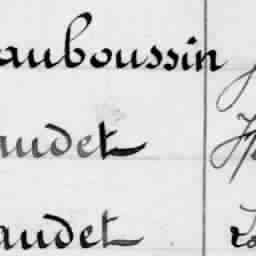 auboussin
audet
audet